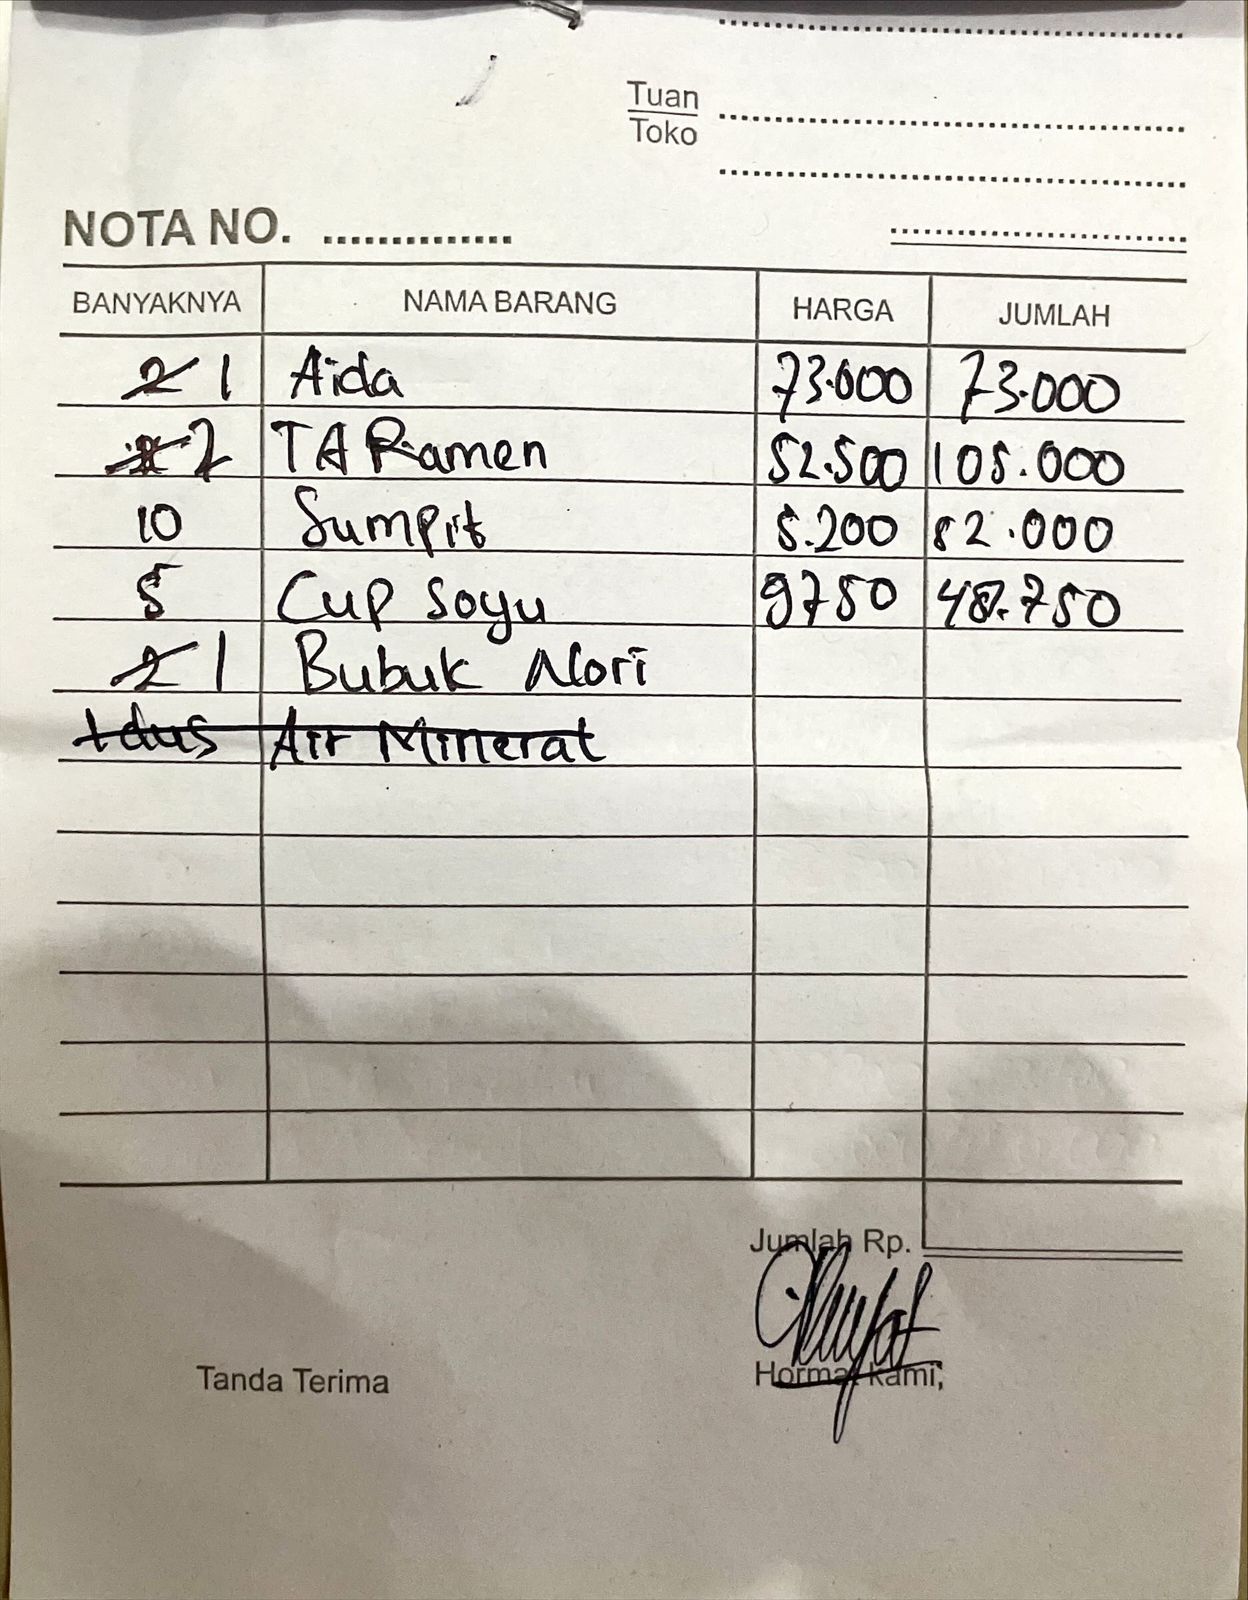 Tuan
Toko
NOTA NO. ..............
BANYAKNYA NAMA BARANG HARGA JUMLAH
2 1 Aida 73.000 73.000
2 TA Ramen 52.500 105.000
10 Sumpit 8.200 82.000
5 Cup soyu 9750 48.750
2 1 Bubuk Nori
1 dus Air Mineral
Jumlah Rp.
Tanda Terima Hormat kami,